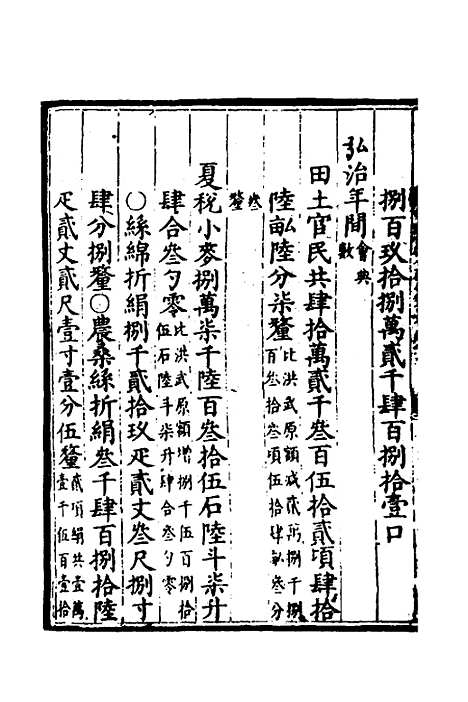 捌百玖拾捌萬貳千肆百捌拾壹口
弘治年間會典數
田土官民共肆拾萬貳千叁百伍拾貳頃肆拾
陸畝陸分柒釐比洪武原額減貳萬捌千捌百叁拾叁頃伍拾肆畝叁分叁釐
夏稅小麥捌萬柒千陸百叁拾伍石陸斗柒升
肆合叁勺零比洪武原額增捌千伍百捌拾伍石陸斗柒升肆合叁勺零
〇絲綿折絹捌千貳拾玖疋貳丈叁尺捌寸
肆分捌釐〇農桑絲折絹叁千肆百捌拾陸
疋貳丈貳尺壹寸壹分伍釐貳項絹共壹萬壹千伍百壹拾